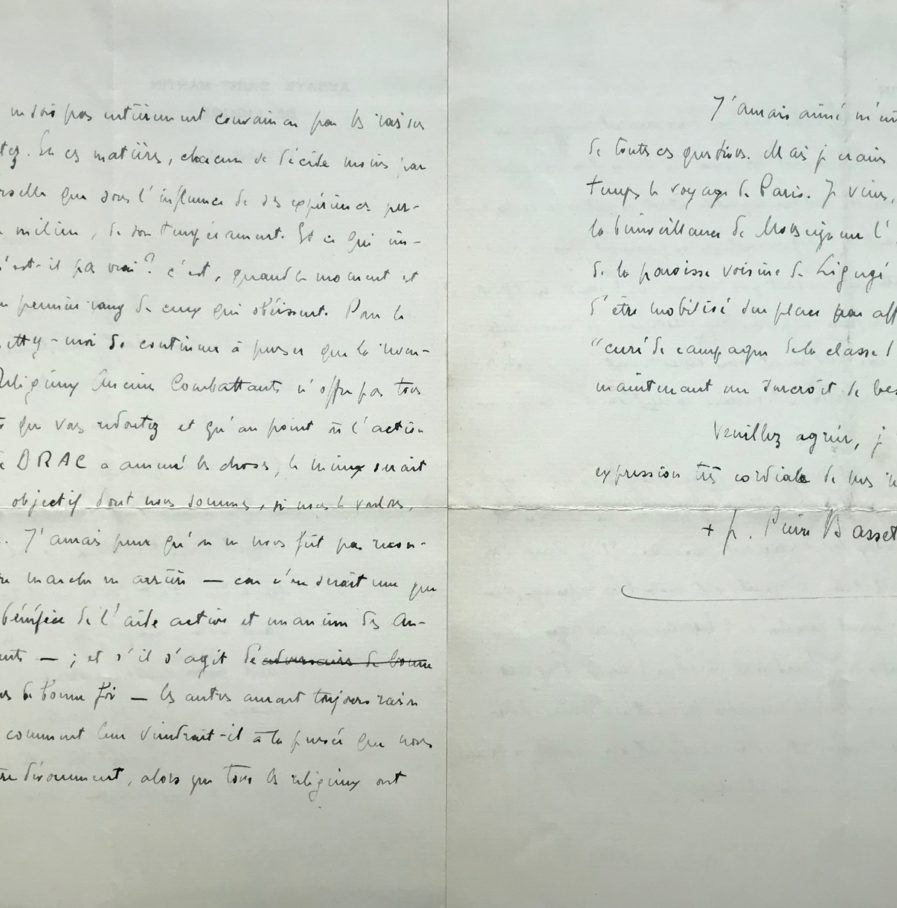 suis pas entièrement convaincu par les raisons
tez. En ces matières, chacun se décide moins par
selle que sous l'influence de ses expériences per-
milieu, de son tempérament. Et ce qui im-
n'est-il pas vrai? c'est, quand le moment est
premier rang de ceux qui obéissent. Pour le
ettez-moi de continuer à penser que la inven-
Religieux Anciens Combattants n'offre pas tous
que vous redoutez et qu'au point où l'action
DRAC a amené les choses, le mieux serait
objectif dont nous sommes, si nous le voulons,
. J'aurais peur qu'on ne nous fût pas recon-
marche en arrière — car c'en serait une que
bénéfice de l'aide active et unanime des An-
nts — ; et s'il s'agit de adversaires de bonne
de bonne foi — les autres auront toujours raison
comment leur viendrait-il à la pensée que nous
dévouement, alors que tous les religieux ont
J'aurais aimé m'en
de toutes ces questions. Mais je crains
temps le voyage de Paris. Je viens,
la bienveillance de Monseigneur l'
de la paroisse voisine de Ligugé
d'être mobilisé sur place par aff
"curé de campagne de la classe 1
maintenant un surcroît de bes
Veuillez agréer, j
expression très cordiale de mes
+ f. Pierre Basset
ABBAYE SAINT-MARTIN